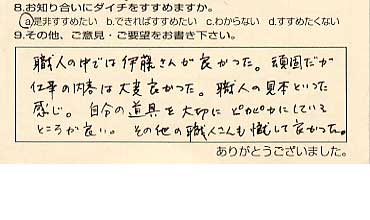 8.お知り合いにダイチをすすめますか。
a.是非すすめたい b.できればすすめたい c.わからない d.すすめたくない
9.その他、ご意見・ご要望をお書き下さい。
職人の中では伊藤さんが良かった。頑固だが
仕事の内容は大変良かった。職人の見本といった
感じ。自分の道具を大切にピカピカにしている
ところが良い。その他の職人さんも概して良かった。
ありがとうございました。